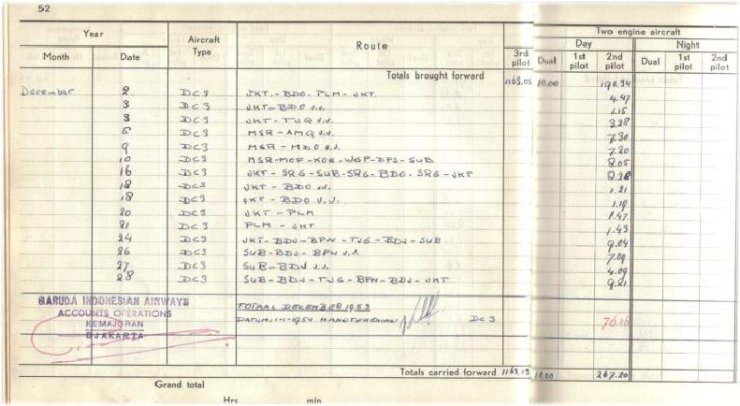 52
Year
Aircraft Type
Route
Two engine aircraft
Month
Date
3rd pilot
Dual
Day
1st pilot
2nd pilot
Night
Dual
1st pilot
2nd pilot
Totals brought forward 1163.03 18.00 190.34
December 2 DC3 JKT.-BDO-PLM-JKT. 4.47
3 DC3 JKT-BDO V.V. 1.15
3 DC3 JKT-TJQ V.V. 3.28
8 DC3 MSR-AMQ V.V. 7.30
9 DC3 MSR-MDO V.V. 7.20
10 DC3 MSR-MOF-KOE-WGP-DPS-SUB 8.05
16 DC3 JKT-SRG-SUB-SRG-BDO-SRG-JKT 8.28
18 DC3 JKT-BDO V.V. 1.21
18 DC3 JKT-BDO V.V. 1.19
20 DC3 JKT-PLM 1.47
21 DC3 PLM-JKT 1.43
24 DC3 JKT-BDJ-BPN-TJG-BDJ-SUB 9.04
26 DC3 SUB-BDJ-BPN V.V. 7.09
27 DC3 SUB-BDJ V.V. 4.09
28 DC3 SUB-BDJ-TJG-BPN-BDJ-JKT 9.21
GARUDA INDONESIAN AIRWAYS
ACCOUNTS OPERATIONS
KEMAJORAN
DJAKARTA
TOTAAL DECEMBER 1953
DATUM: 1-1954 HANDTEKENING: DC3 76.46
Totals carried forward 1163.03 18.00 267.20
Grand total
Hrs min